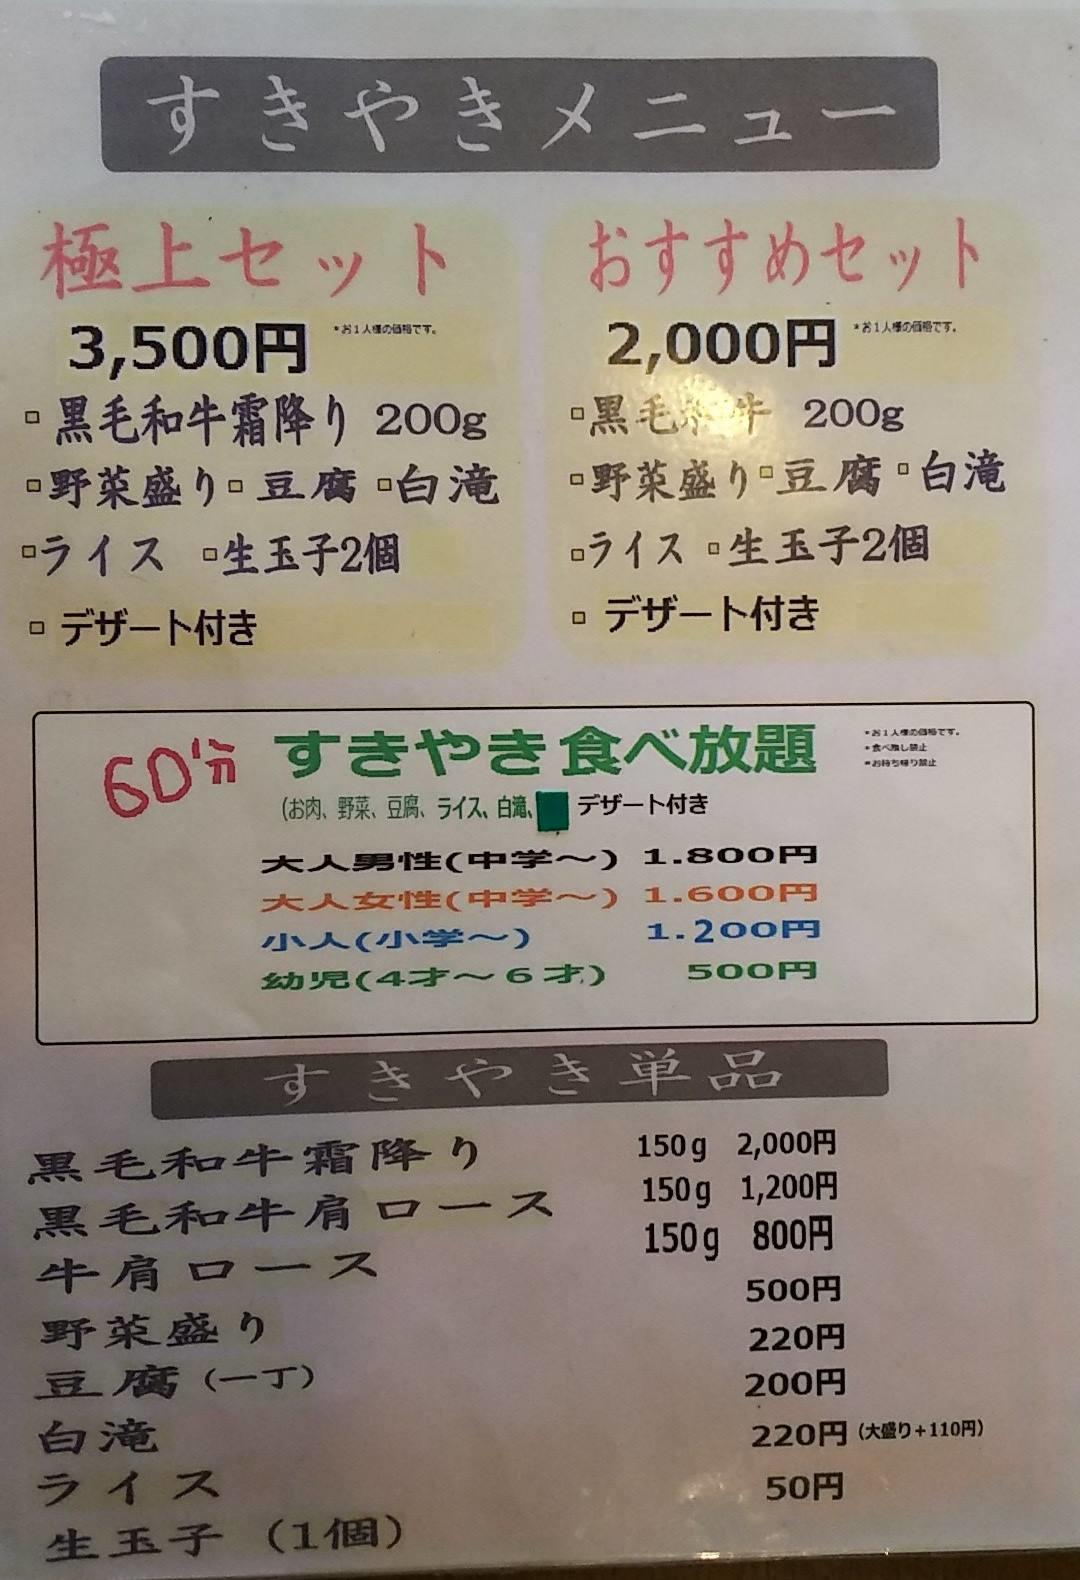 すきやきメニュー
極上セット
3,500円 *お1人様の価格です。
黒毛和牛霜降り 200g
野菜盛り 豆腐 白滝
ライス 生玉子2個
デザート付き
おすすめセット
2,000円 *お1人様の価格です。
黒毛和牛 200g
野菜盛り 豆腐 白滝
ライス 生玉子2個
デザート付き
60分 すきやき食べ放題
*お1人様の価格です。
*食べ残し禁止
*お持ち帰り禁止
(お肉、野菜、豆腐、ライス、白滝、 デザート付き
大人男性(中学～) 1.800円
大人女性(中学～) 1.600円
小人(小学～) 1.200円
幼児(4才～6才) 500円
すきやき単品
黒毛和牛霜降り 150g 2,000円
黒毛和牛肩ロース 150g 1,200円
牛肩ロース 150g 800円
野菜盛り 500円
豆腐(一丁) 220円
白滝 200円
ライス 220円(大盛り+110円)
生玉子 (1個) 50円